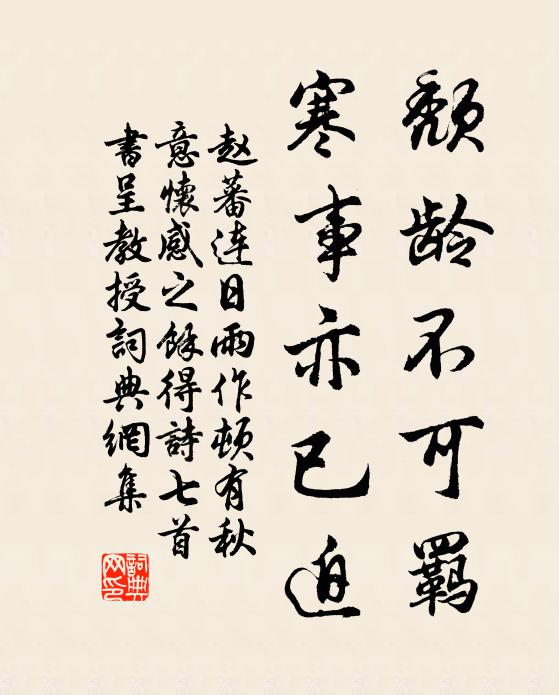 颓龄不可羁
寒事亦已迫
赵蕃连日雨作顿有秋
意怀感之馀得詩七首
書呈教授詞典網集
詞典网印